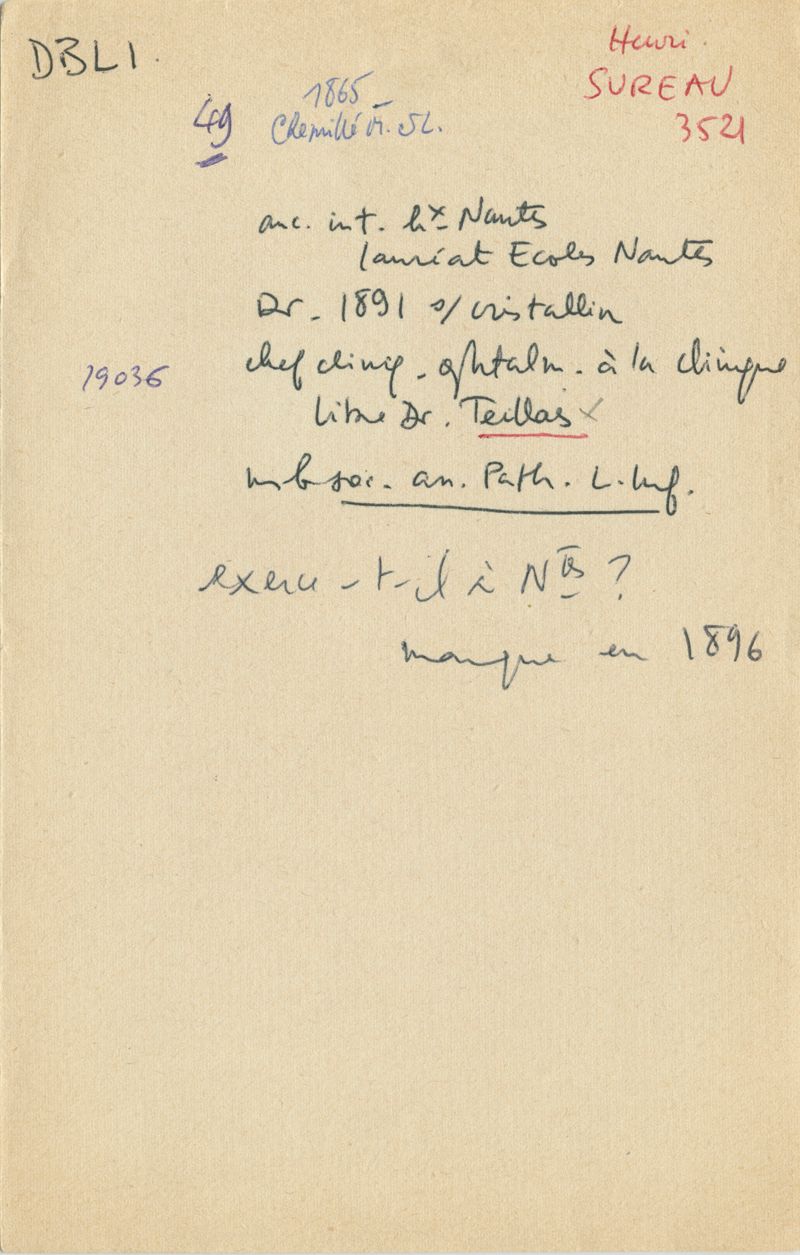 DBLI.
Henri
SUREAU
3521
49
1865
Chemillé M. & L.
anc. int. hx Nantes
lauréat Ecoles Nantes
Dr. 1891 s/ cristallin
chef cliniq. ophtalm. à la clinique
19036
libre Dr. Teillais x
mb soc. an. Path. L. Inf.
exerce-t-il à Ntes ?
manque en 1896